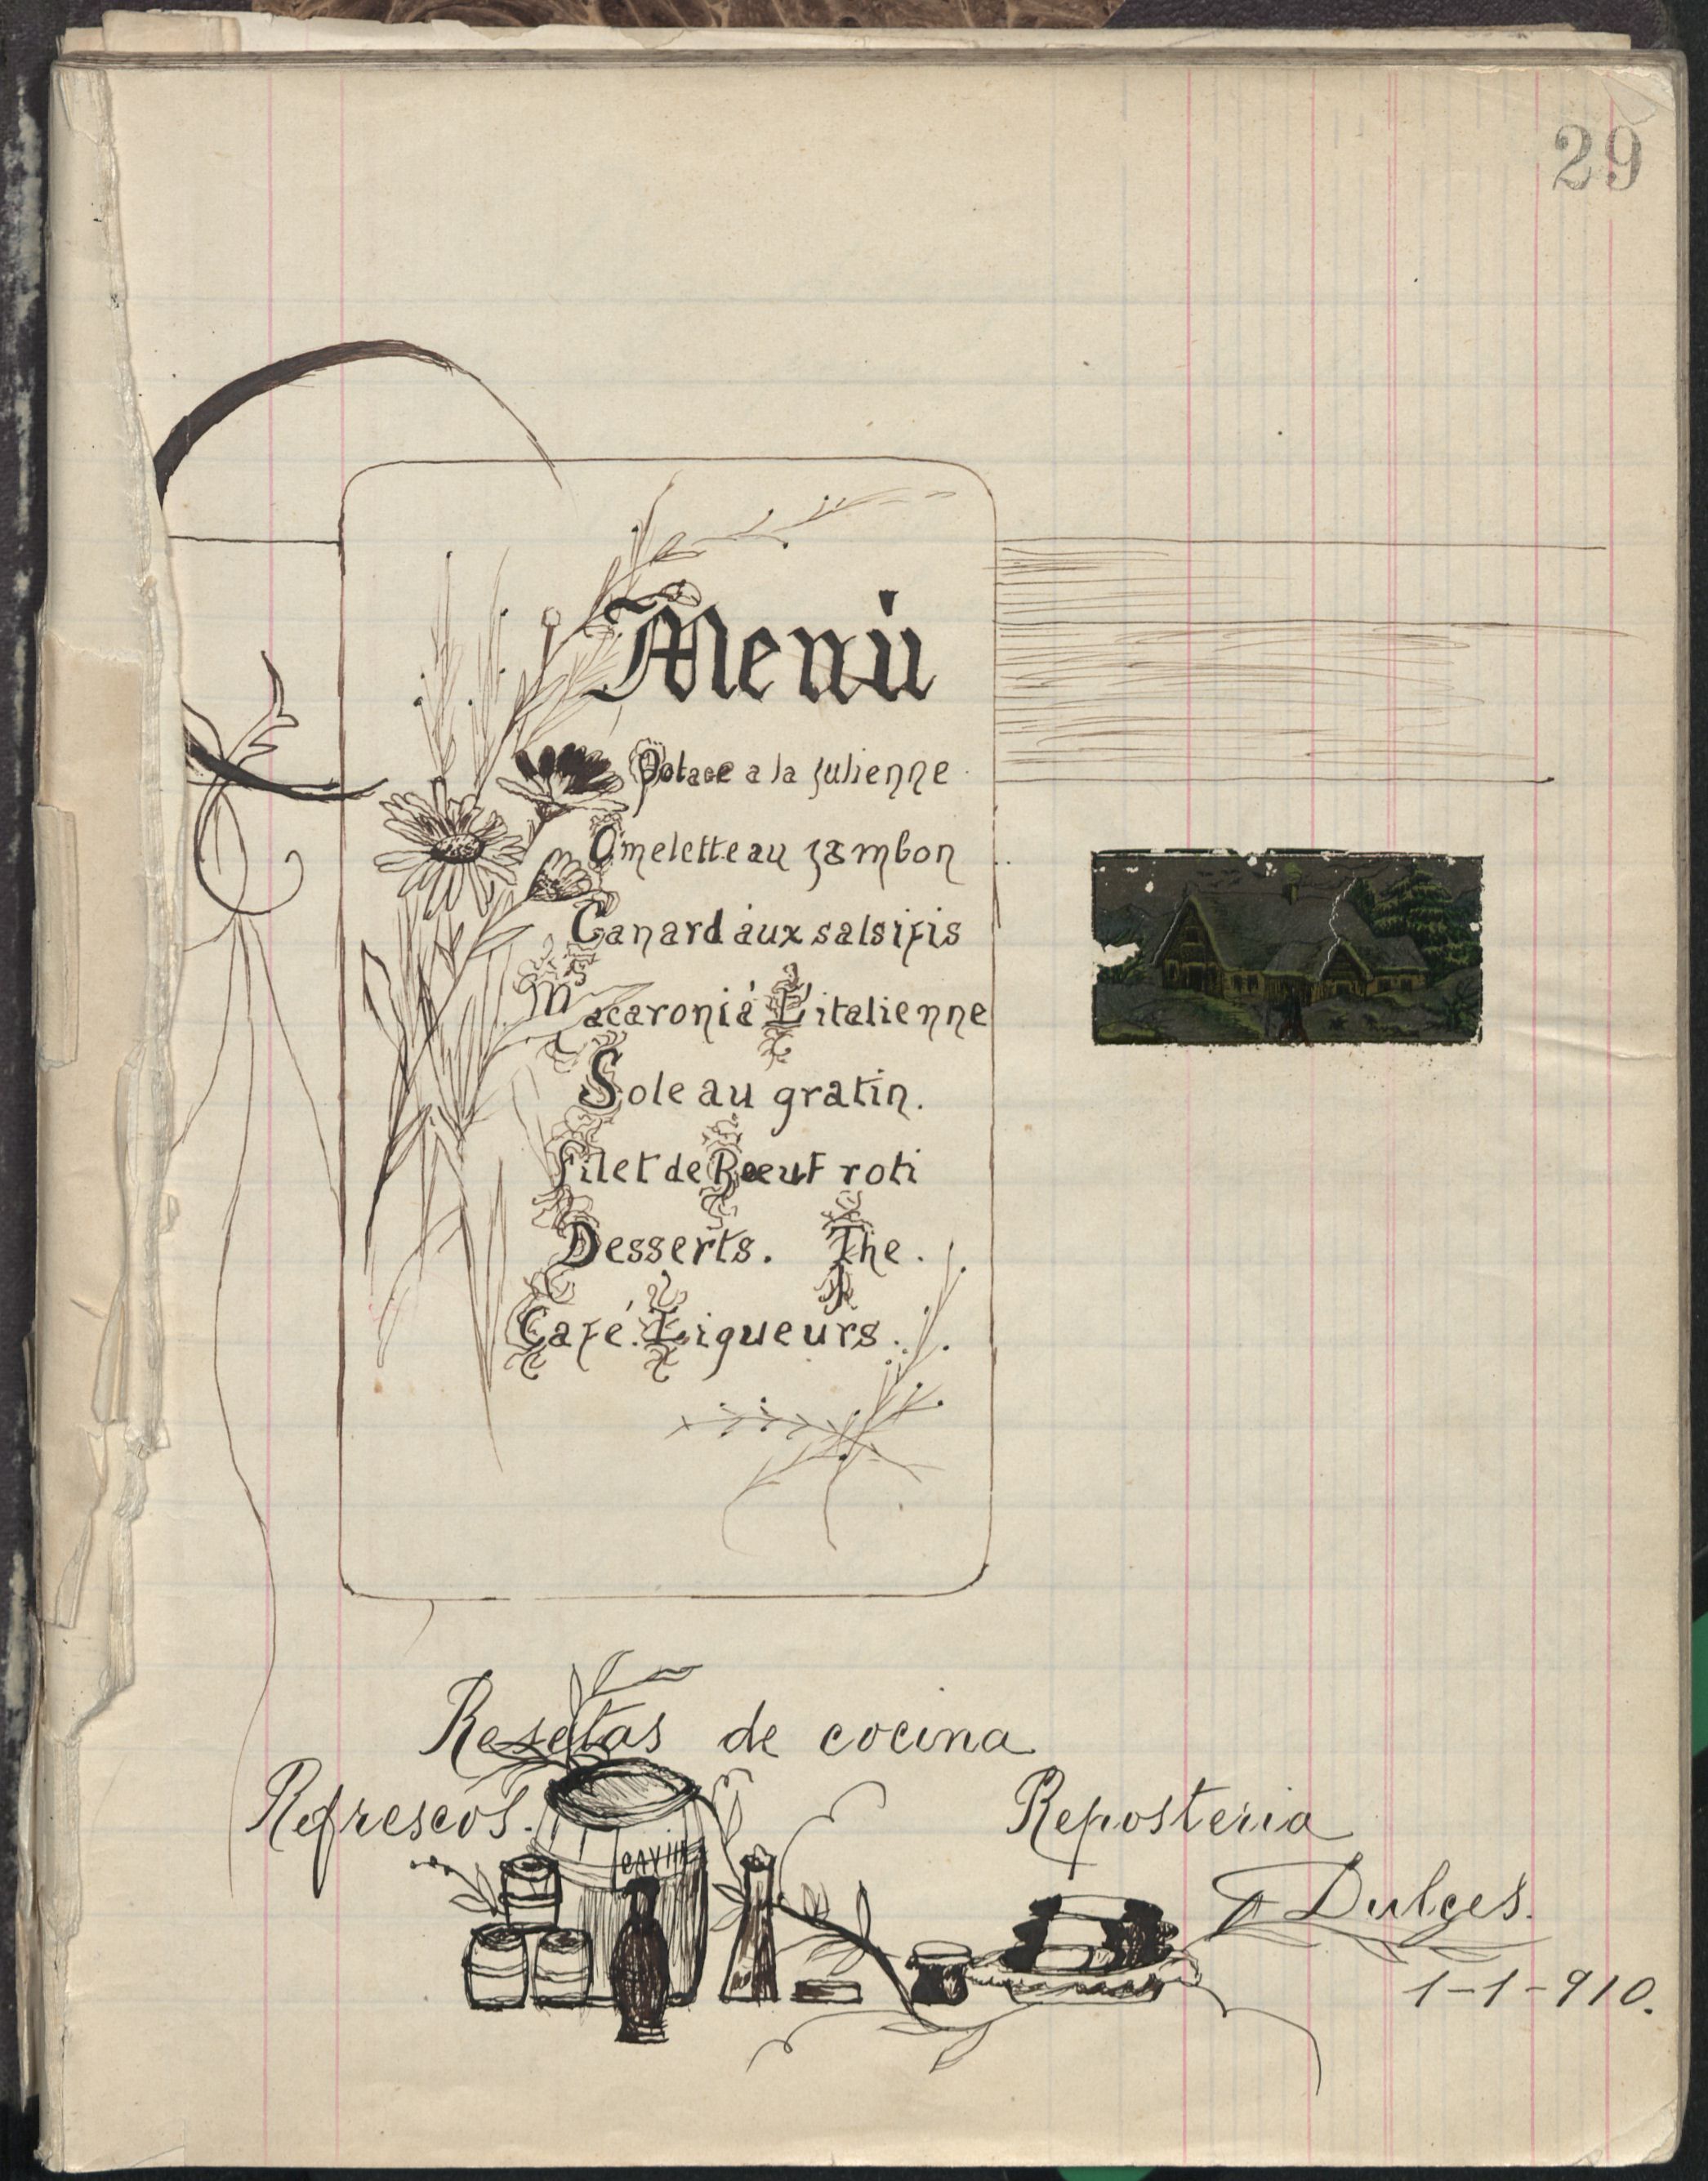 29
Menú
Potage a la julienne
Omelette au jambon
Canard aux salsifis
Macaroni á L'italienne
Sole au gratin.
filet de Bœuf roti
Desserts. The.
Café. Liqueurs.
Resetas de cocina
Refrescos. Reposteria
Dulces.
1-1-910.